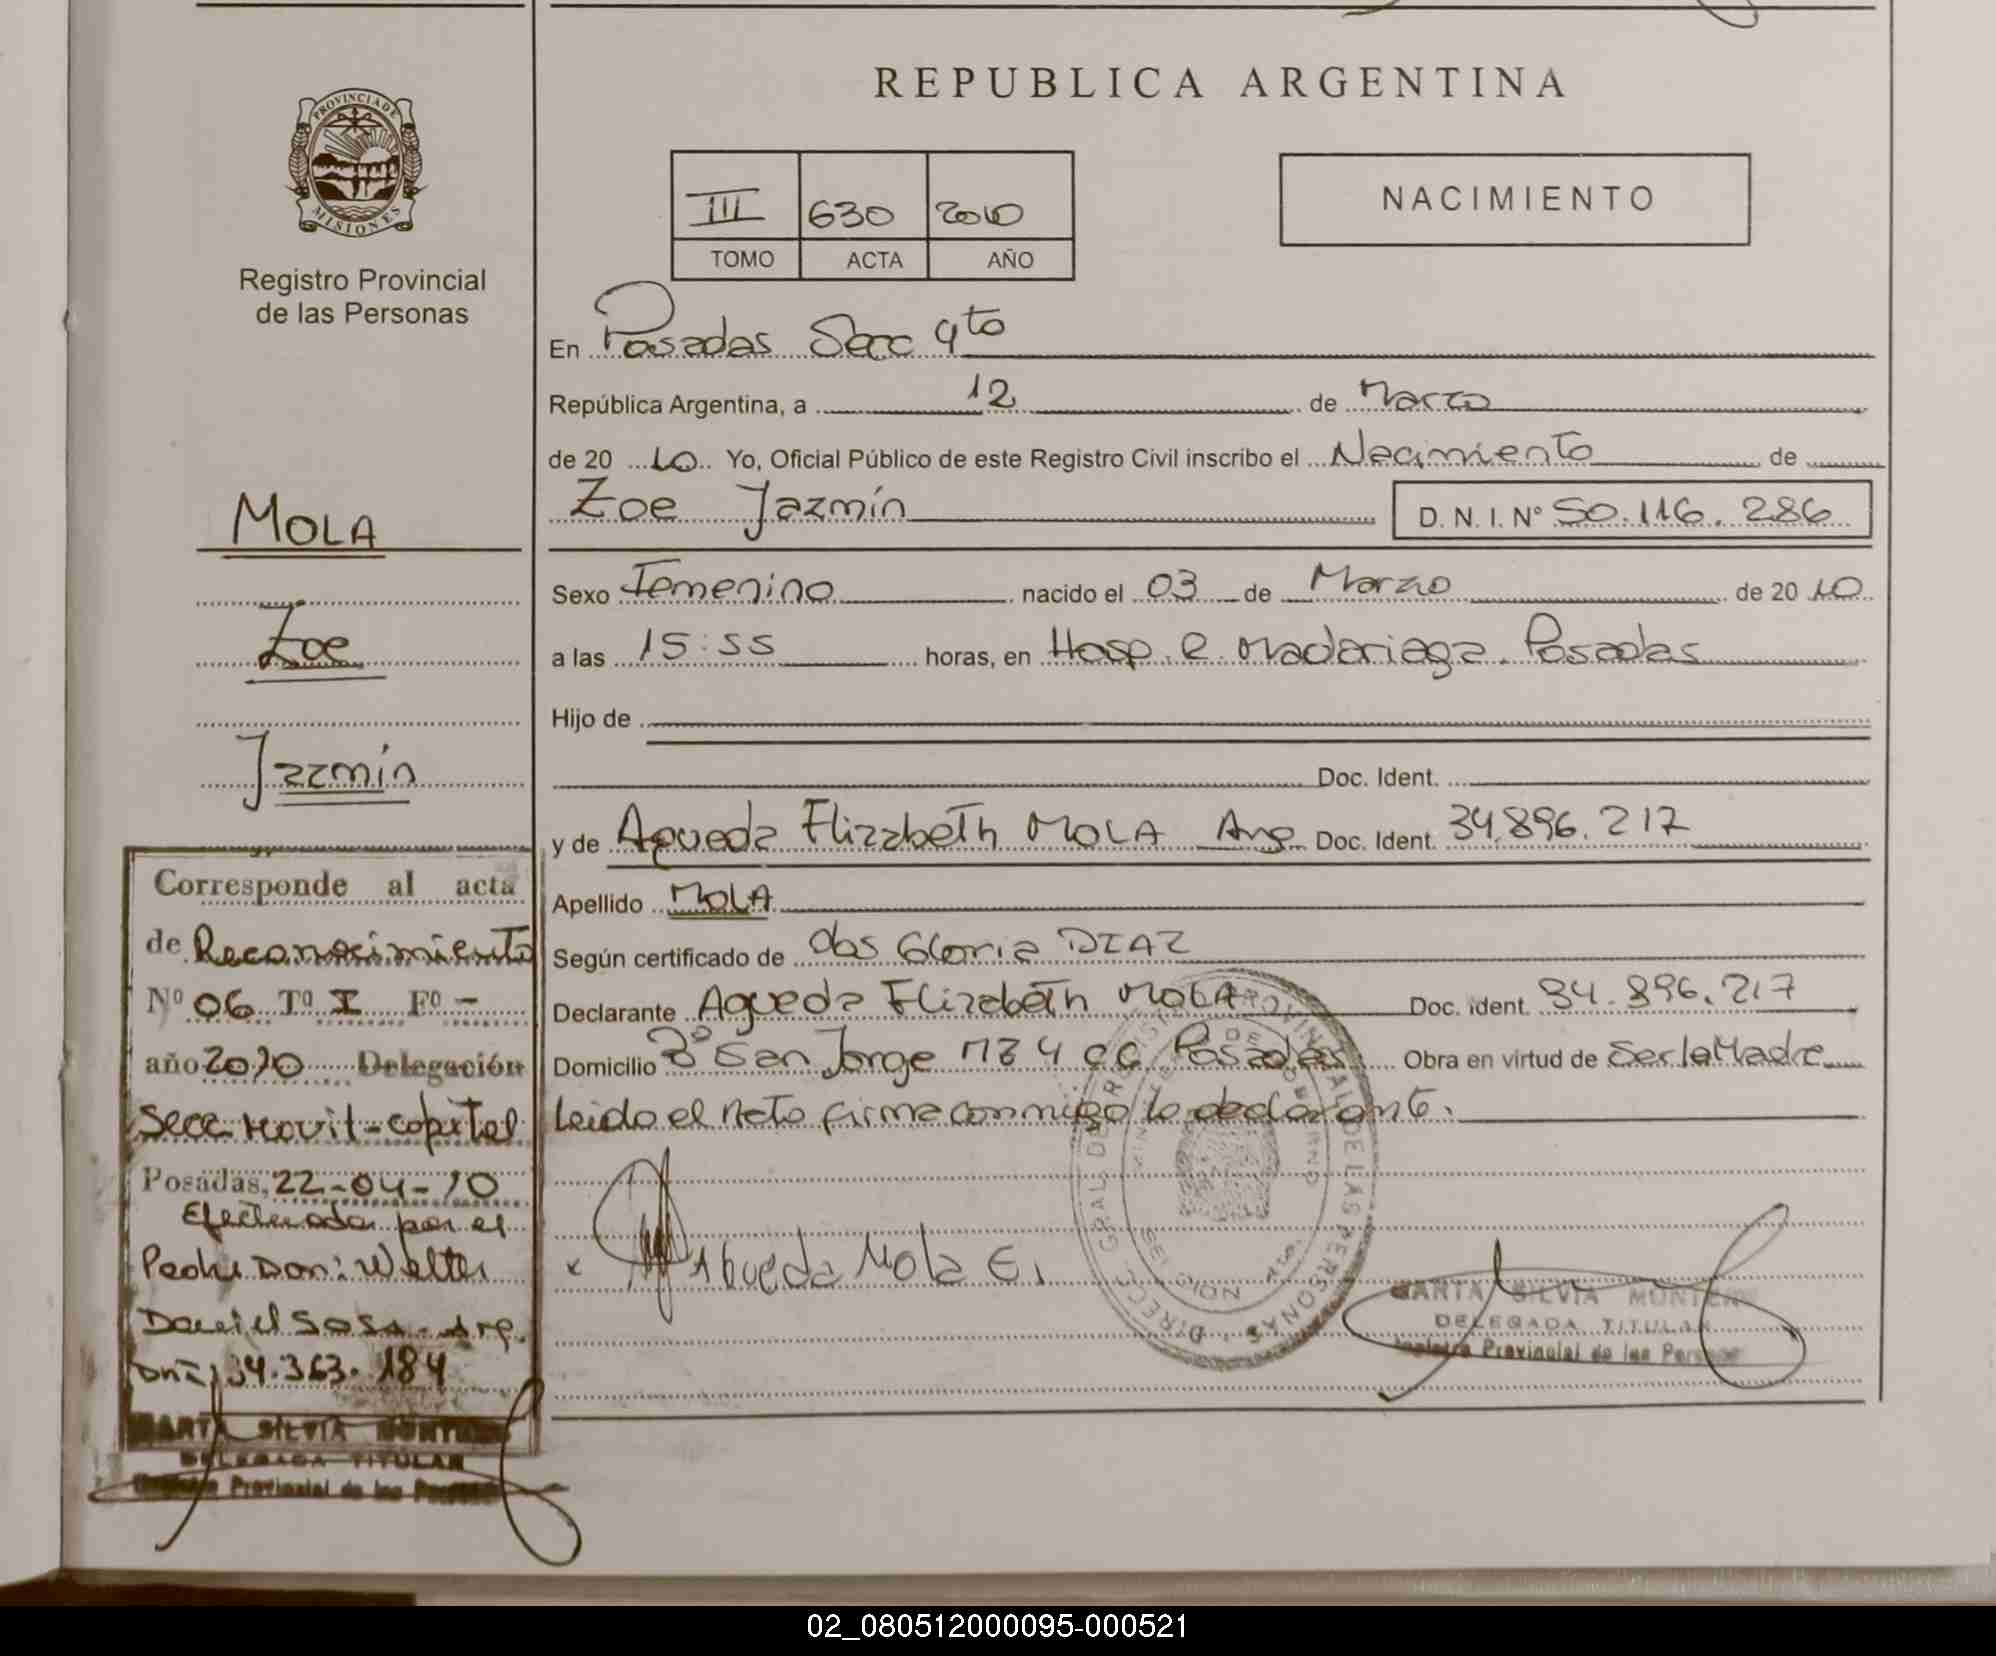 REPUBLICA ARGENTINA
PROVINCIA DE
MISIONES
Registro Provincial
de las Personas
III 630 2010
TOMO ACTA AÑO
NACIMIENTO
En Posadas Secc 4to
República Argentina, a 12 de Marzo
de 20 10 Yo, Oficial Público de este Registro Civil inscribo el Nacimiento de
Zoe Jazmín D. N. I. Nº 50.116.286
Sexo Femenino nacido el 03 de Marzo de 20 10
a las 15:55 horas, en Hosp. R. Madariaga. Posadas
Hijo de
Doc. Ident.
y de Agueda Elizabeth MOLA Arg Doc. Ident. 34.896.217
Apellido MOLA
Según certificado de Obs Gloria DIAZ
Declarante Agueda Elizabeth MOLA Doc. ident. 34.896.217
Domicilio Bº San Jorge MZ 4 Posadas Obra en virtud de Ser la Madre
Leido el Acto firma conmigo la declarante.
Agueda Mola E.
MARTA SILVIA
DELEGADA TITULAR
Registro Provincial de las Personas
MOLA
Zoe
Jazmín
Corresponde al acta
de Reconocimiento
Nº 06 Tº I Fº -
año 2010 Delegación
Secc Movil-capital
Posadas, 22-04-10
Efectuado por el
Padre Don: Walter
Daniel SOSA - Arg.
DNI 34.363.184
MARTA SILVIA
DELEGADA TITULAR
Registro Provincial de las Personas
02_080512000095-000521